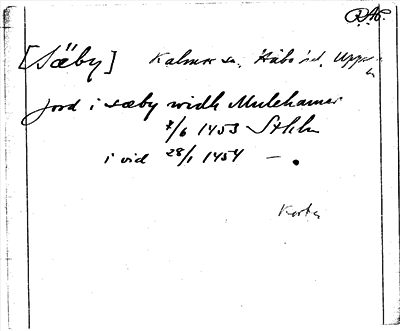 RAp.
[Säby] Kalmar sn. Håbo hd. Upps. l
jord i sæby widh Mulehamar
7/6 1453 Sthlm
i vid 28/1 1454 — .
Korta